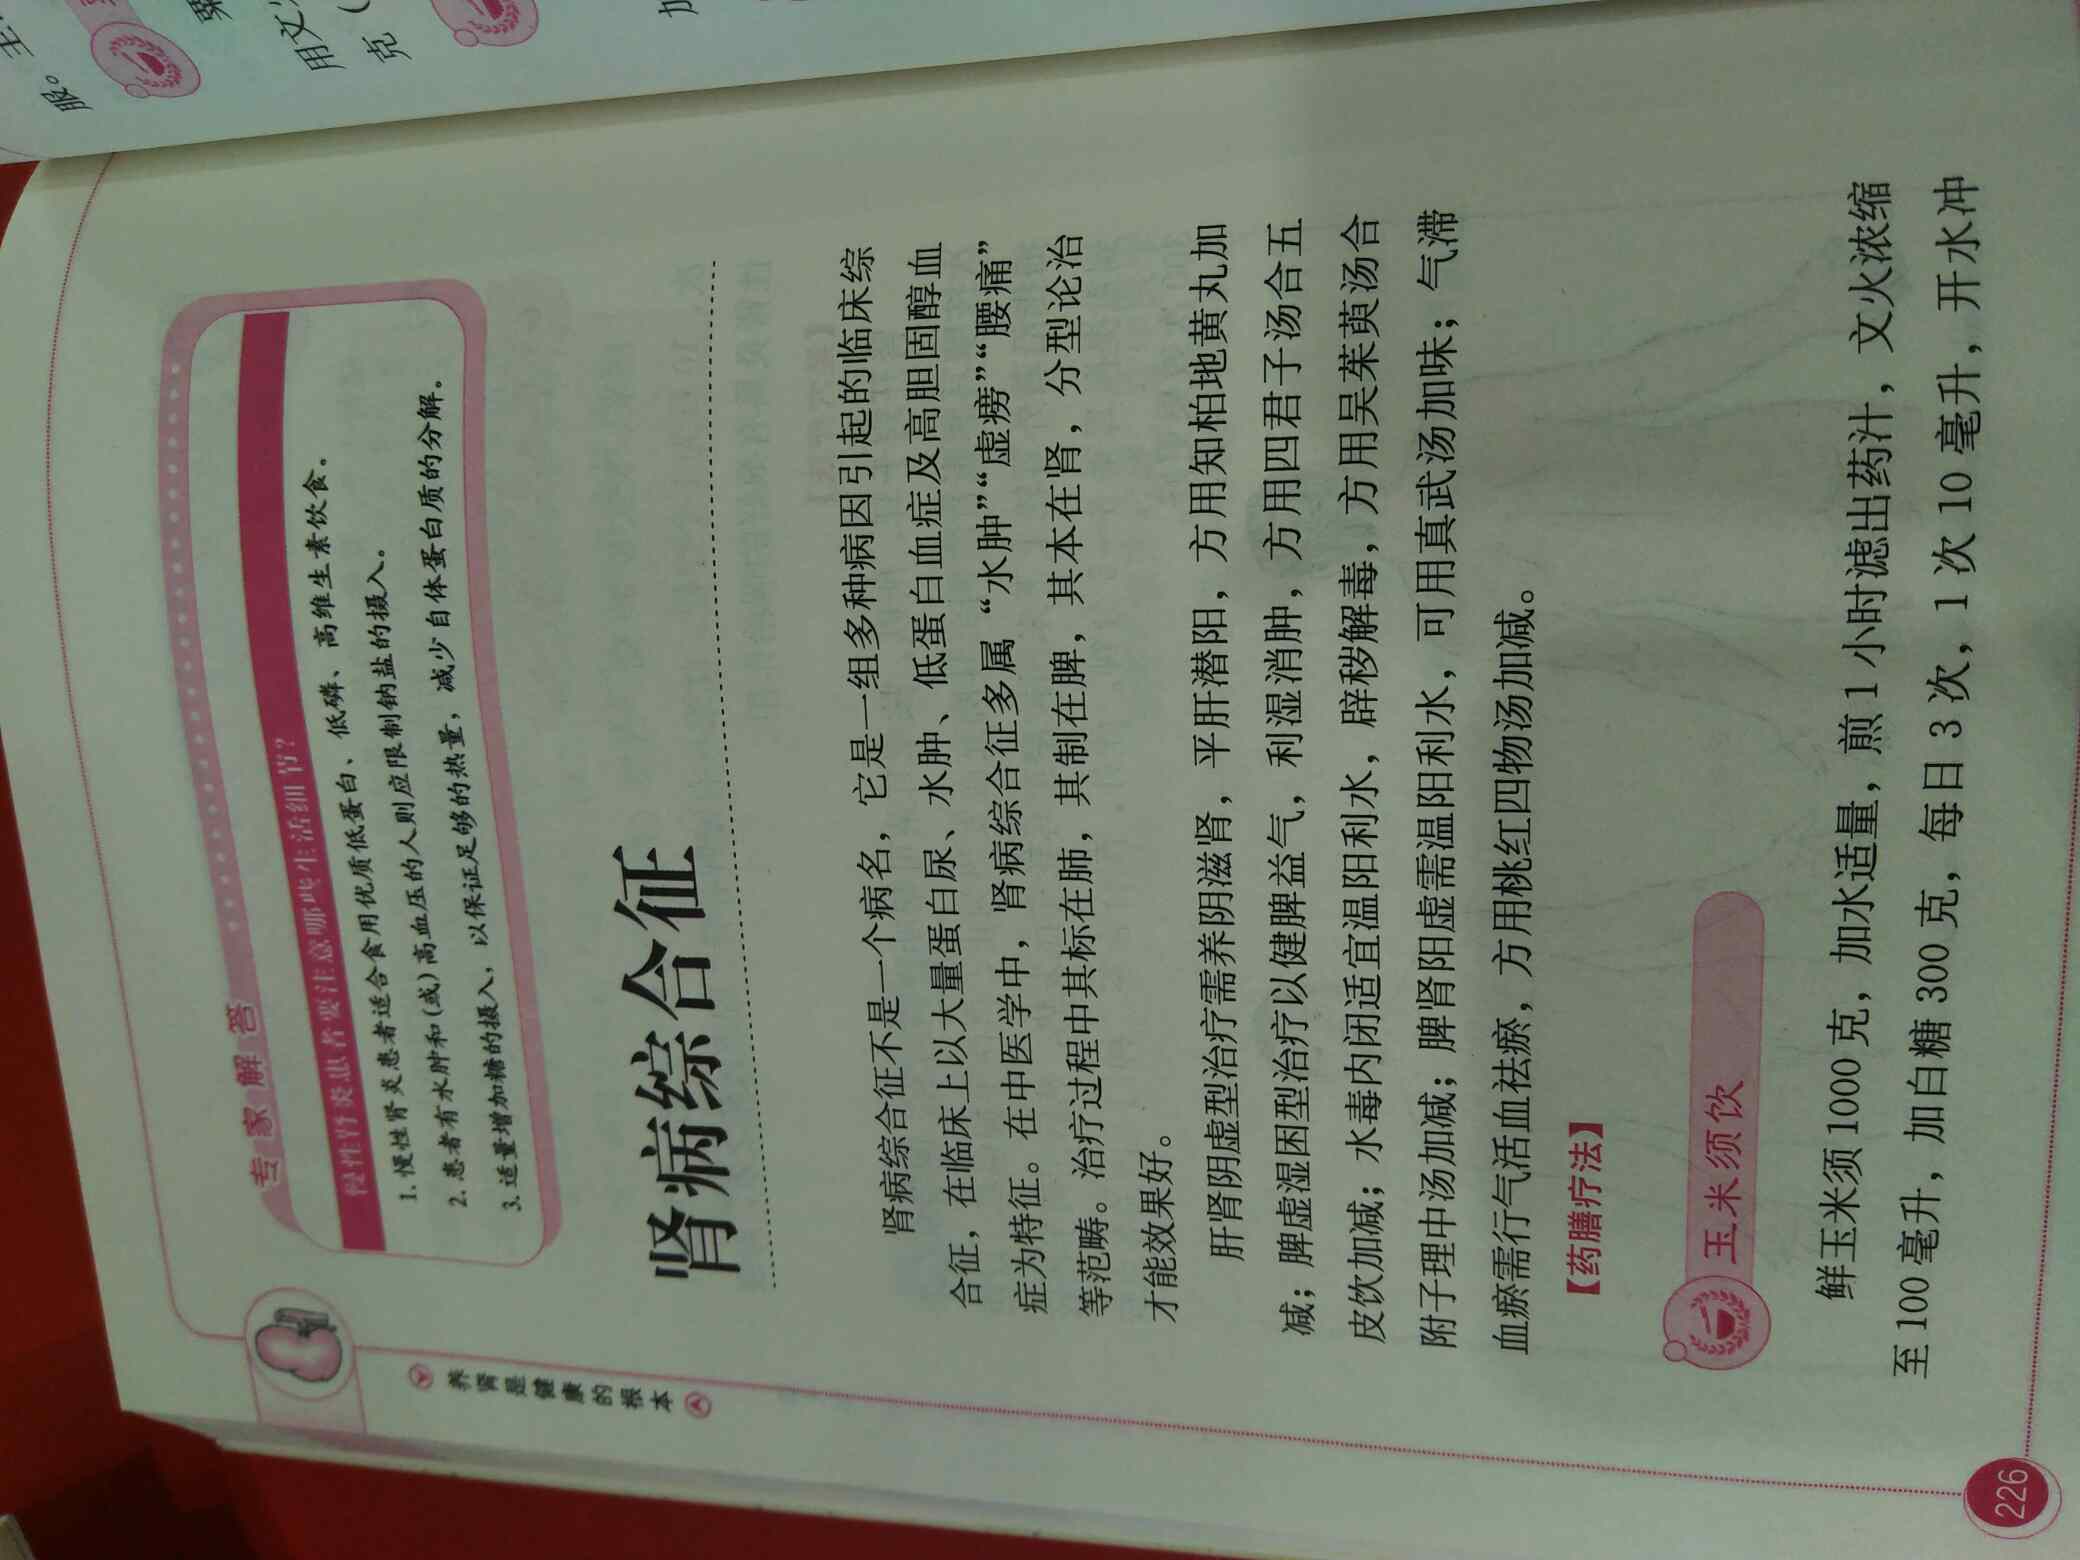 专家解答
慢性肾炎患者要注意哪些生活细节?
1.慢性肾炎患者适合食用优质低蛋白、低磷、高维生素饮食。
2.患者有水肿和(或)高血压的人则应限制钠盐的摄入。
3.适量增加糖的摄入，以保证足够的热量，减少自体蛋白质的分解。
养肾是健康的根本
肾病综合征
肾病综合征不是一个病名，它是一组多种病因引起的临床综
合征，在临床上以大量蛋白尿、水肿、低蛋白血症及高胆固醇血
症为特征。在中医学中，肾病综合征多属“水肿”“虚痨”“腰痛”
等范畴。治疗过程中其标在肺，其制在脾，其本在肾，分型论治
才能效果好。
肝肾阴虚型治疗需养阴滋肾，平肝潜阳，方用知柏地黄丸加
减；脾虚湿困型治疗以健脾益气，利湿消肿，方用四君子汤合五
皮饮加减；水毒内闭适宜温阳利水，辟秽解毒，方用吴茱萸汤合
附子理中汤加减；脾肾阳虚需温阳利水，可用真武汤加味；气滞
血瘀需行气活血祛瘀，方用桃红四物汤加减。
【药膳疗法】
玉米须饮
鲜玉米须1000克，加水适量，煎1小时滤出药汁，文火浓缩
至100毫升，加白糖300克，每日3次，1次10毫升，开水冲
226
服。
用文
克